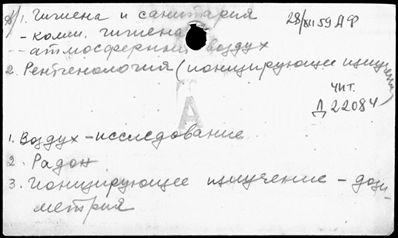 1. Гигиена и санитария
28/VII 59 АФ
- комм. гигиена
-- атмосферный воздух
2. Рентгенология (ионизирующее излучение)
чит.
Д 22084
А
1. Воздух - исследование
2. Радон
3. Ионизирующее излучение - дози-
метрия